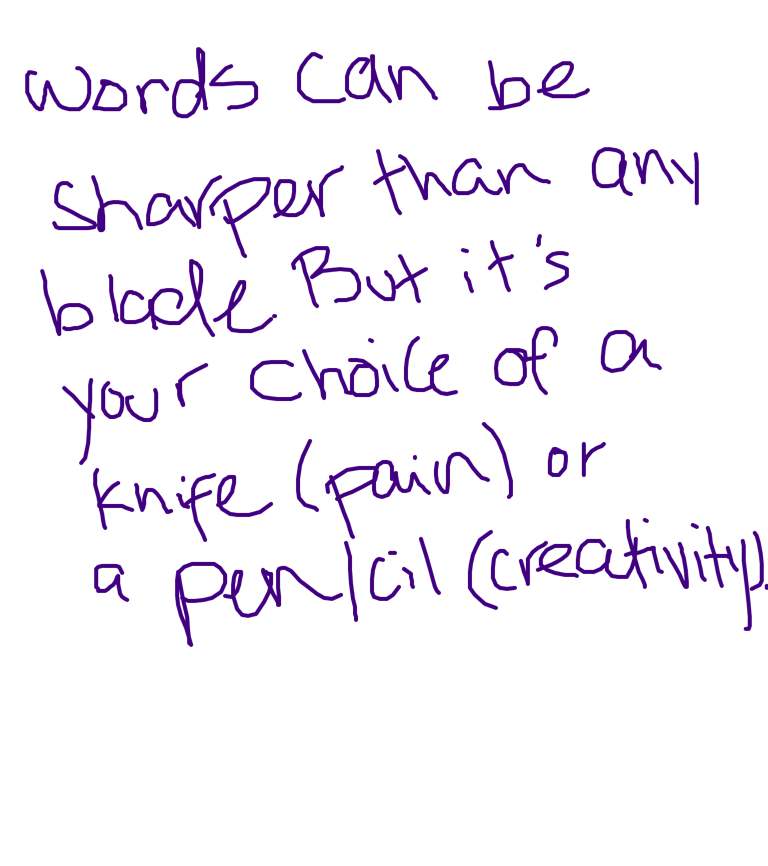 words can be
sharper than any
blade. But it's
your choice of a
knife (pain) or
a pen/cil (creativity).